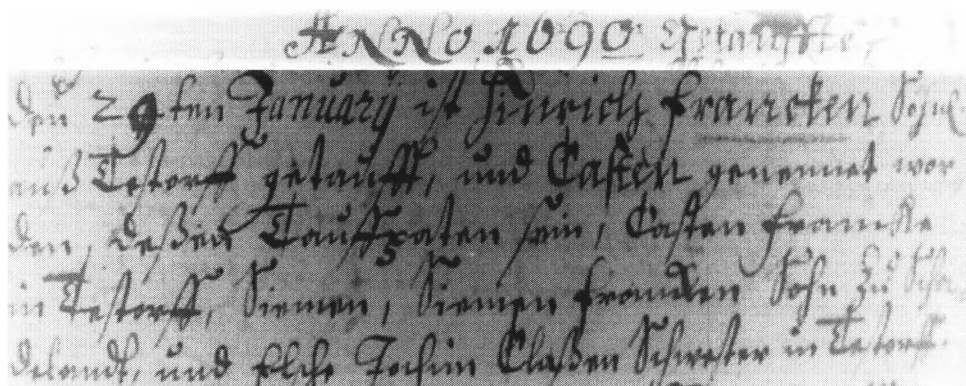 ANNO 1690 Getauffte
den 29ten January ist Hinrich Francken Sohn
auß Testorff getaufft, und Casten genennet wor
den, deßen Tauffpaten sein, Casten Francke
in Testorff, Siemen, Siemen Francken Sohn zu Scha
delandt, und Elche Jochim Claßen Schwester in Testorff.